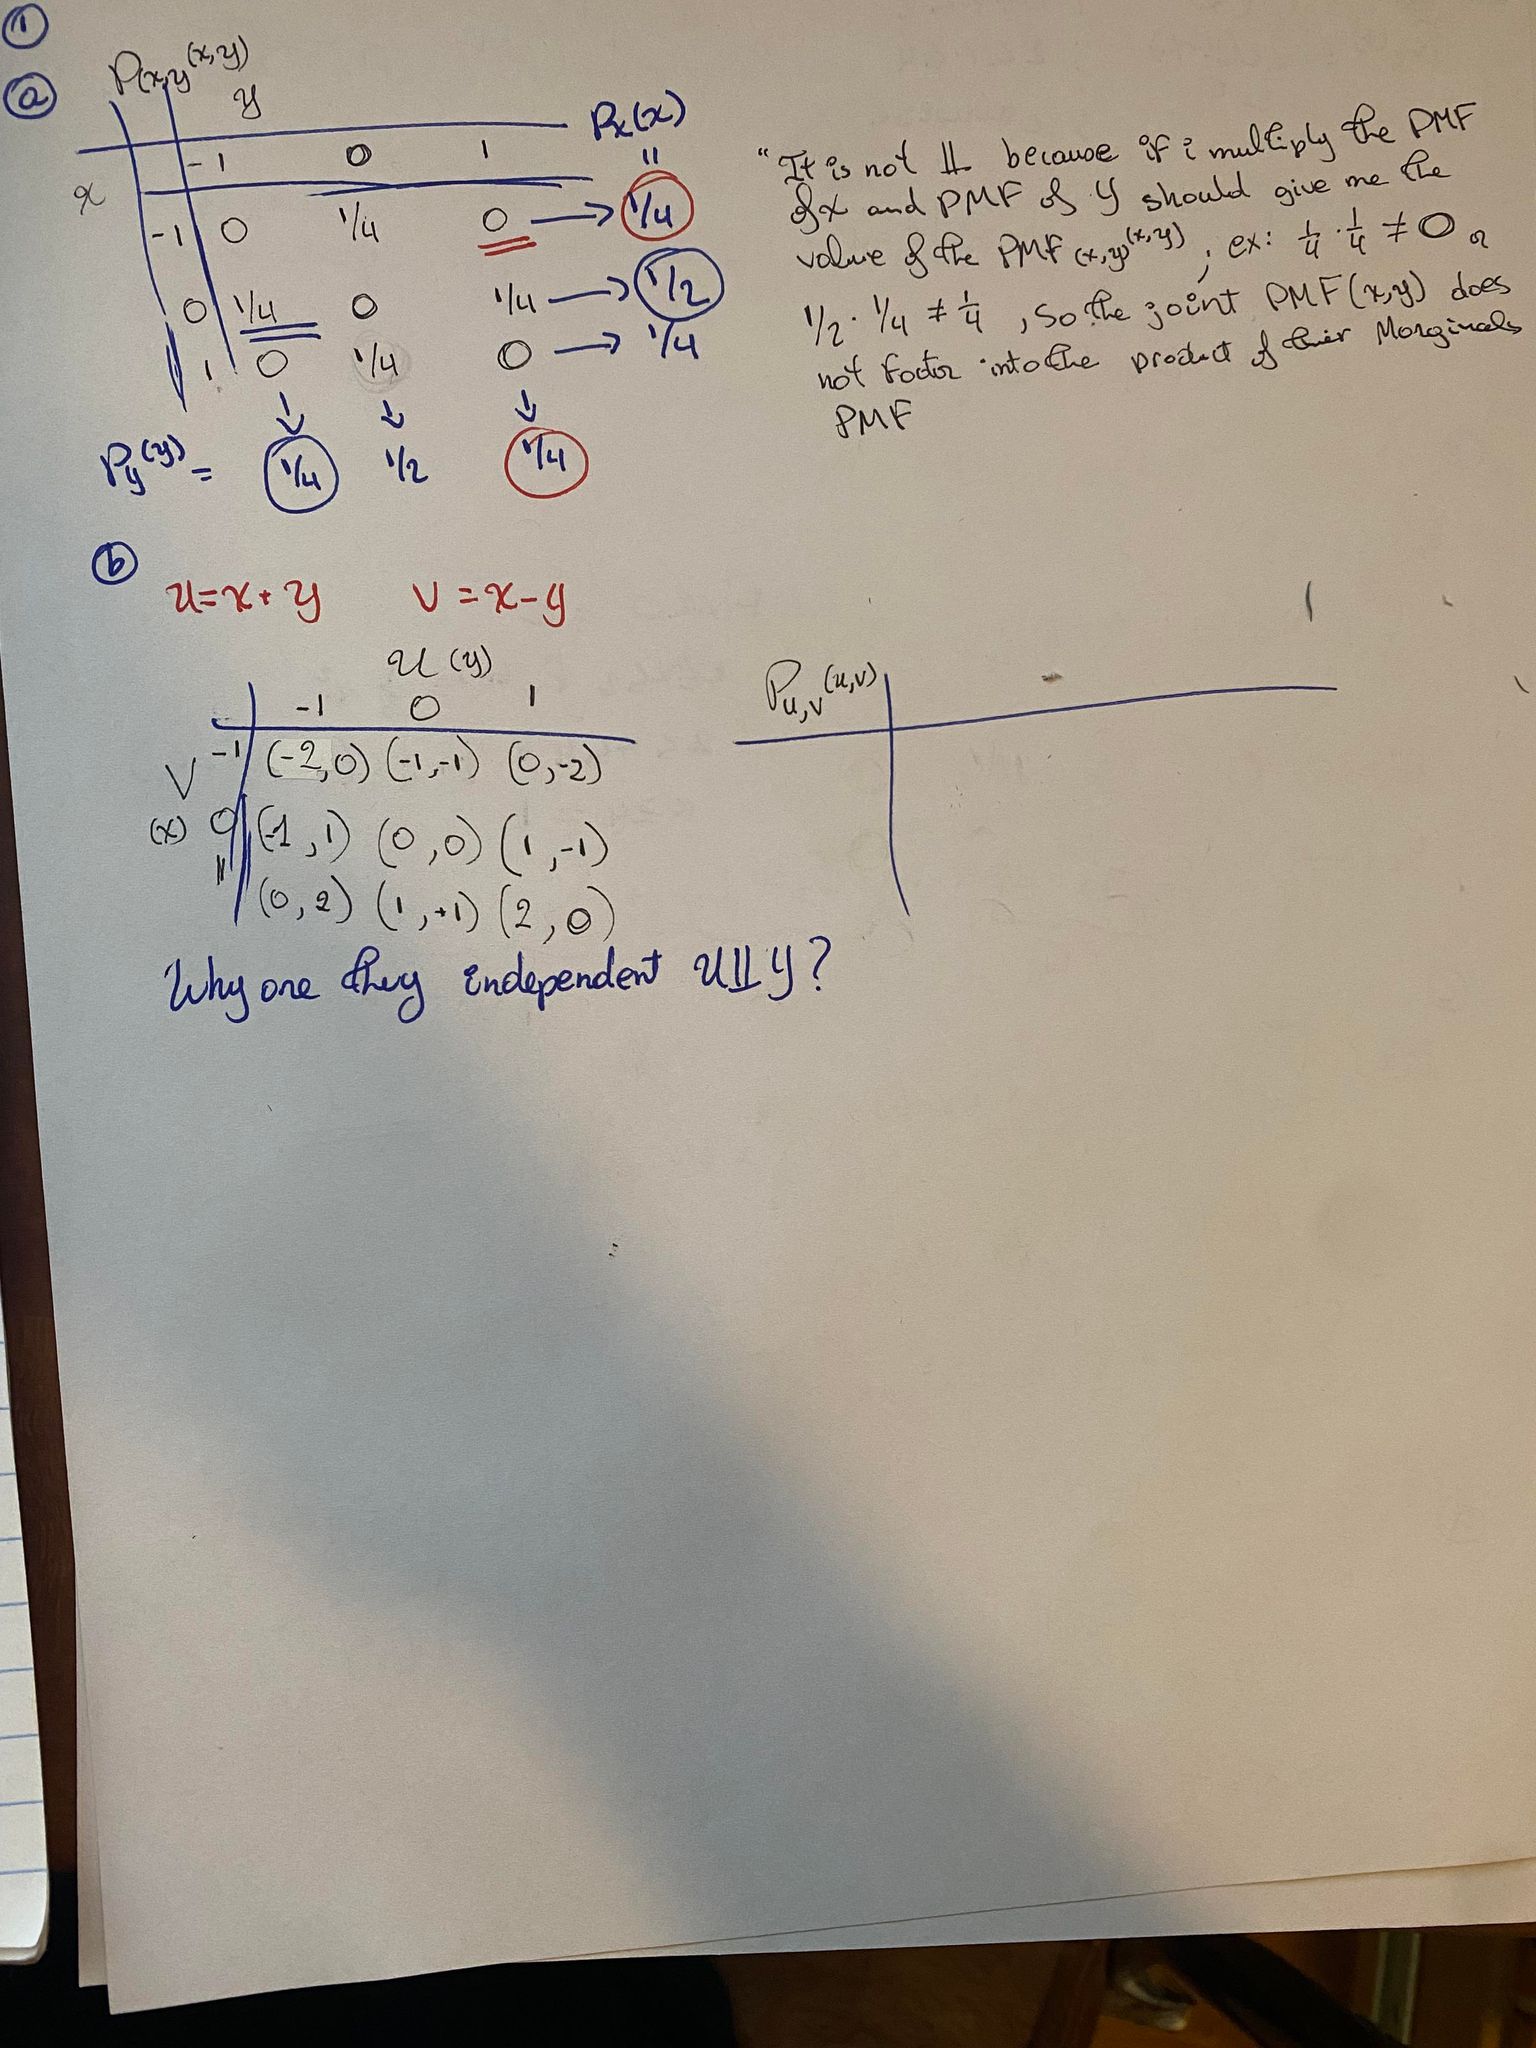 ①
ⓐ P(x,y(x,y)
y
Px(x)
-1 0 1 "
x
-1 0 1/4 0 → 1/4
0 1/4 0 1/4 → 1/2
1 0 1/4 0 → 1/4
↓ ↓ ↓
Py(y) = 1/4 1/2 1/4
"It is not ⫫ because if i multiply the PMF
of x and PMF of y should give me the
value of the PMF (x,y)(x,y), ex: 1/4 · 1/4 ≠ 0
1/2 · 1/4 ≠ 1/4, So the joint PMF(x,y) does
not factor into the product of their Marginals
PMF
ⓑ
u=x+y V=x-y
U (y)
-1 0 1
V -1 (-2,0) (-1,-1) (0,-2)
(x) 0 (-1,1) (0,0) (1,-1)
(0,2) (1,+1) (2,0)
Pu,v(u,v)
Why are they independent U⫫Y?